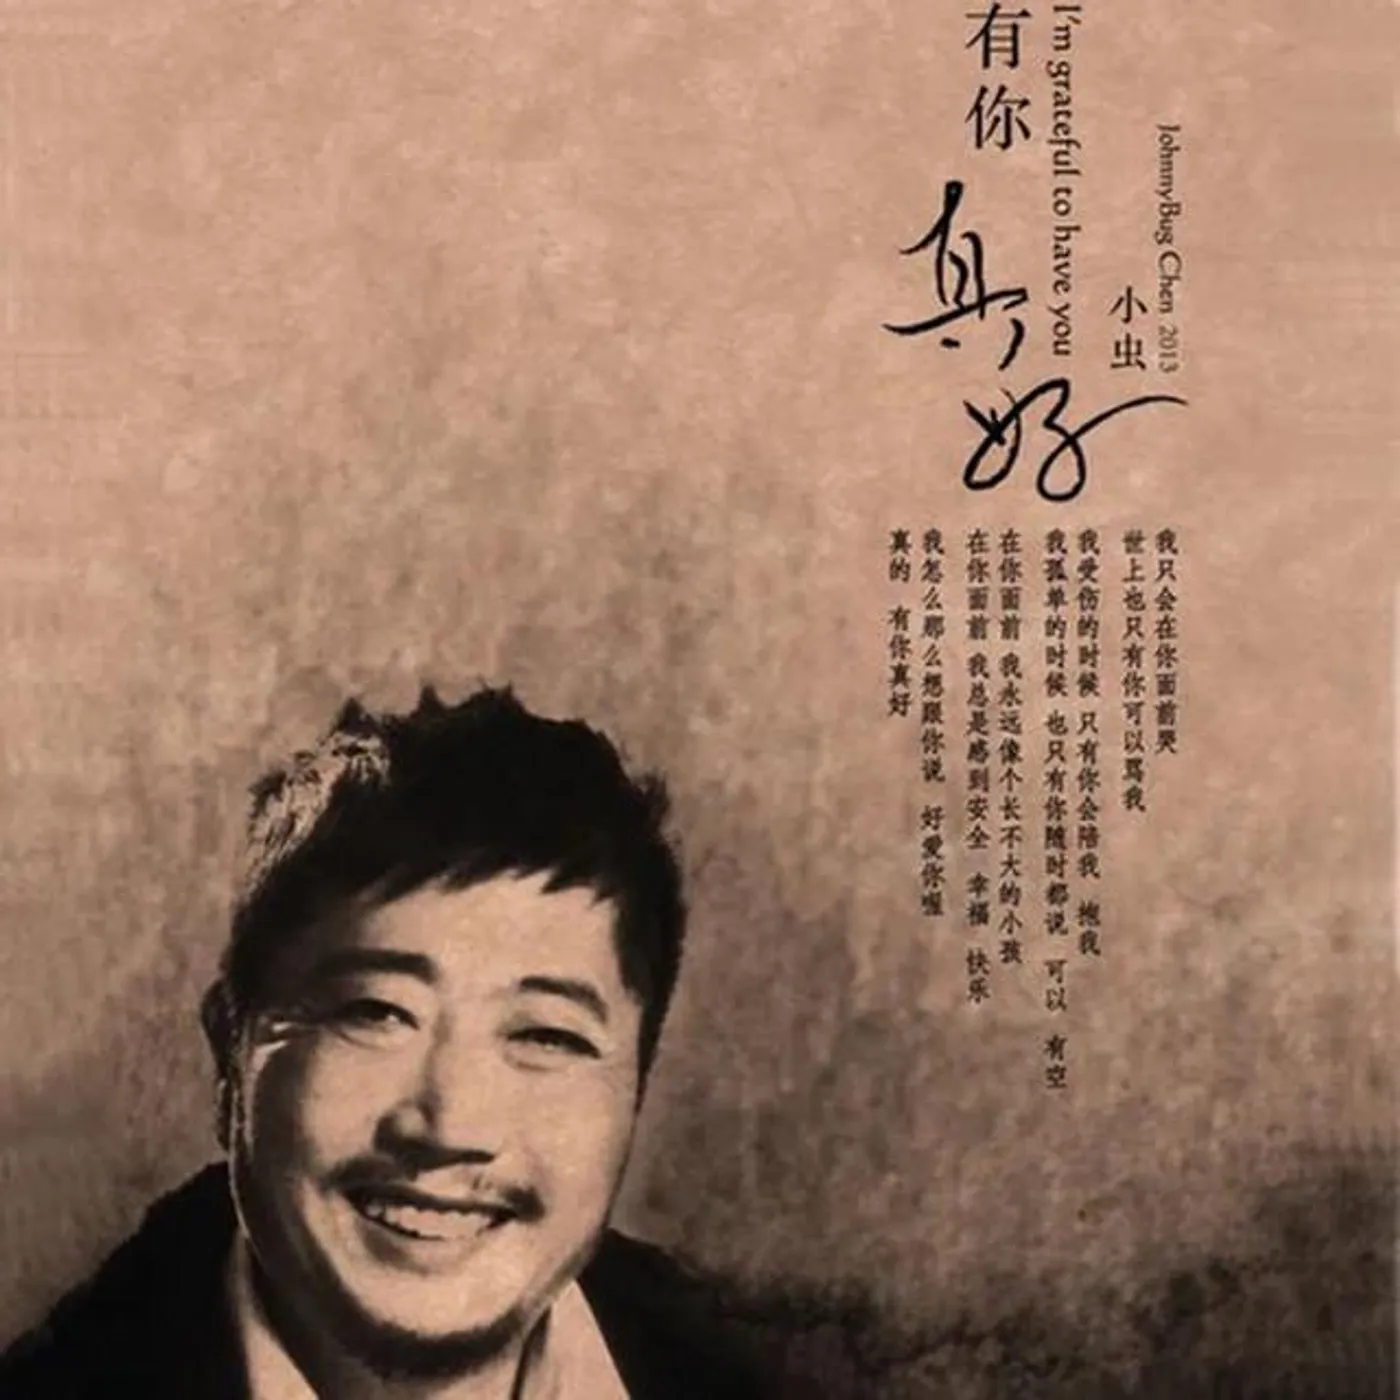 JohnnyBug Chen 2013
小虫
I'm grateful to have you
有你
真好
我只会在你面前哭
世上也只有你可以骂我
我受伤的时候 只有你会陪我 抱我
我孤单的时候 也只有你随时都说 可以 有空
在你面前 我永远像个长不大的小孩
在你面前 我总是感到安全 幸福 快乐
我怎么那么想跟你说 好爱你喔
真的 有你真好